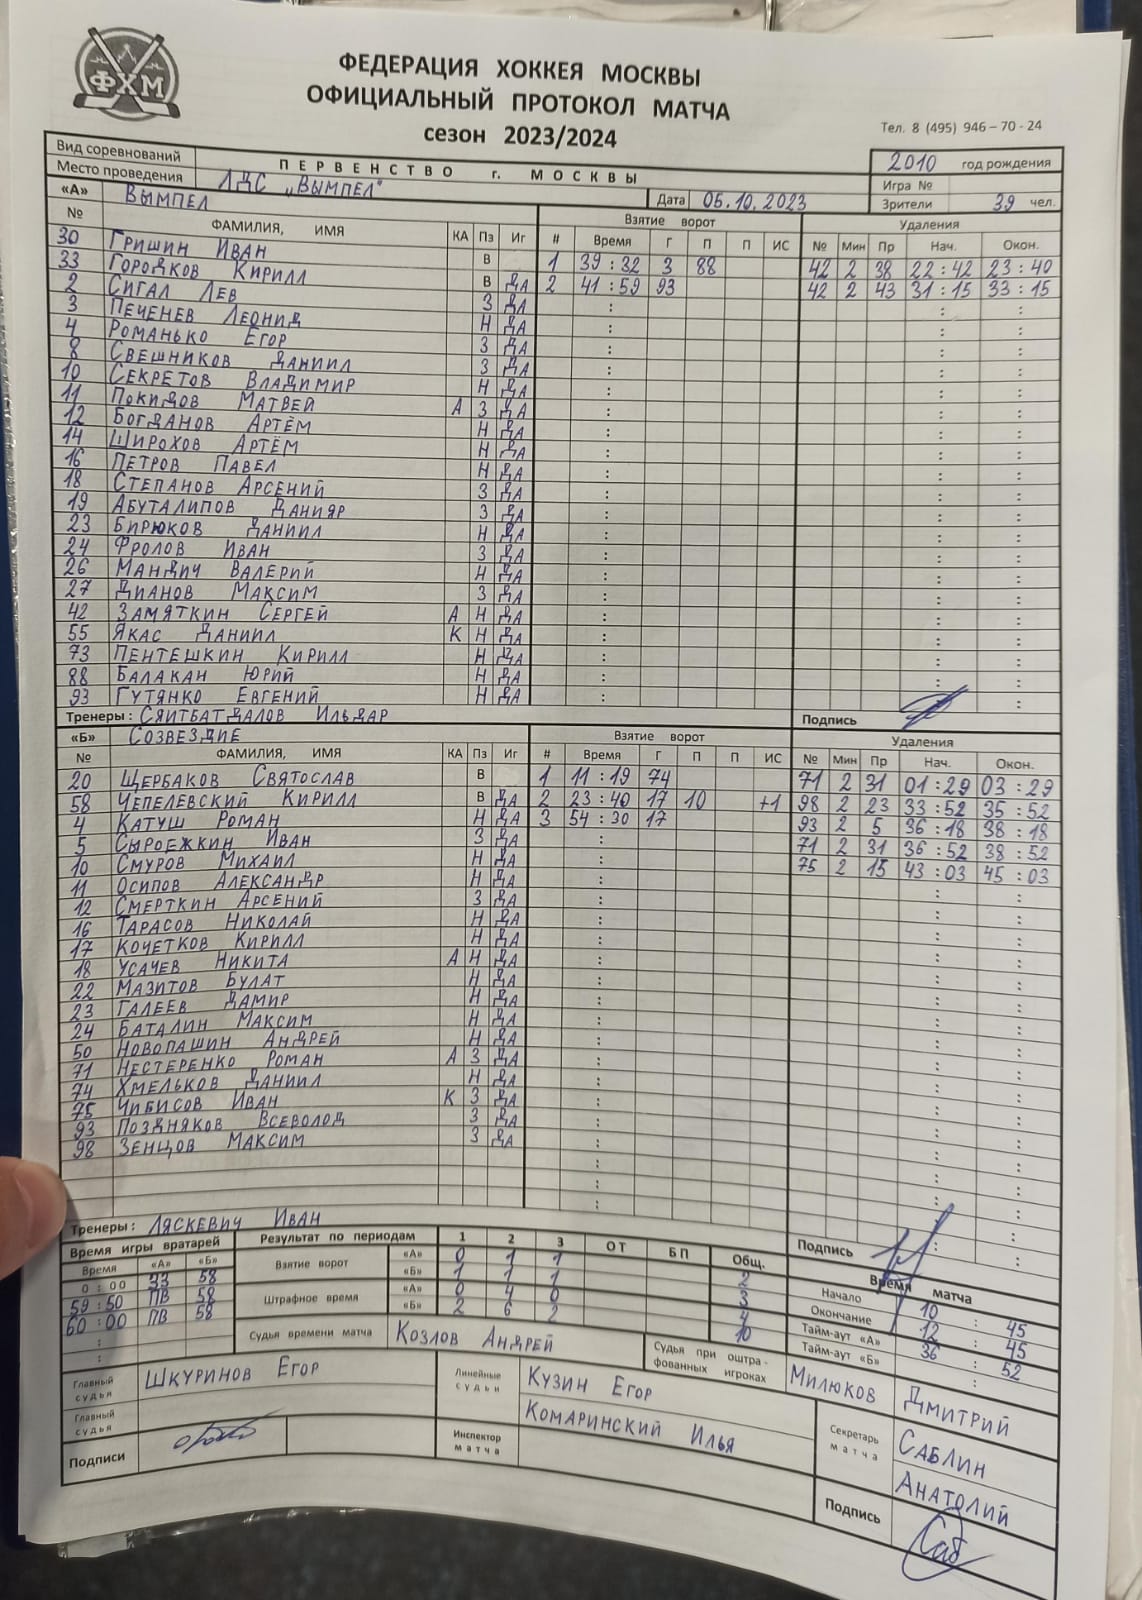 ФХМ
ФЕДЕРАЦИЯ ХОККЕЯ МОСКВЫ
ОФИЦИАЛЬНЫЙ ПРОТОКОЛ МАТЧА
сезон 2023/2024
Тел. 8 (495) 946 – 70 - 24
Вид соревнований ПЕРВЕНСТВО г. МОСКВЫ 2010 год рождения
Место проведения ЛДС „ВЫМПЕЛ" Дата 05.10.2023 Игра №
Зрители 39 чел.
«А» ВЫМПЕЛ Взятие ворот Удаления
№ ФАМИЛИЯ, ИМЯ КА Пз Иг # Время Г П П ИС № Мин Пр Нач. Окон.
30 ГРИШИН ИВАН В 1 39:32 3 88 42 2 38 22:42 23:40
33 ГОРОДКОВ КИРИЛЛ В ДА 2 41:59 93 42 2 43 31:15 33:15
2 СИГАЛ ЛЕВ З ДА
3 ПЕЧЕНЕВ ЛЕОНИД Н ДА
4 РОМАНЬКО ЕГОР З ДА
8 СВЕШНИКОВ ДАНИИЛ З ДА
10 СЕКРЕТОВ ВЛАДИМИР Н ДА
11 ПОКИДОВ МАТВЕЙ А З ДА
12 БОГДАНОВ АРТЁМ Н ДА
14 ШИРОХОВ АРТЁМ Н ДА
16 ПЕТРОВ ПАВЕЛ Н ДА
18 СТЕПАНОВ АРСЕНИЙ З ДА
19 АБУТАЛИПОВ ДАНИЯР З ДА
23 БИРЮКОВ ДАНИИЛ Н ДА
24 ФРОЛОВ ИВАН З ДА
26 МАНДИЧ ВАЛЕРИЙ Н ДА
27 ДИАНОВ МАКСИМ З ДА
42 ЗАМЯТКИН СЕРГЕЙ А Н ДА
55 ЯКАС ДАНИИЛ К Н ДА
73 ПЕНТЕШКИН КИРИЛЛ Н ДА
88 БАЛАКАН ЮРИЙ Н ДА
93 ГУТЯНКО ЕВГЕНИЙ Н ДА
Тренеры: СЯИТБАТДАЛОВ ИЛЬДАР Подпись
«Б» СОЗВЕЗДИЕ Взятие ворот Удаления
№ ФАМИЛИЯ, ИМЯ КА Пз Иг # Время Г П П ИС № Мин Пр Нач. Окон.
20 ЩЕРБАКОВ СВЯТОСЛАВ В 1 11:19 74 71 2 31 01:29 03:29
58 ЧЕПЕЛЕВСКИЙ КИРИЛЛ В ДА 2 23:40 17 10 +1 98 2 23 33:52 35:52
4 КАТУШ РОМАН Н ДА 3 54:30 17 93 2 5 36:18 38:18
5 СЫРОЕЖКИН ИВАН З ДА 71 2 31 36:52 38:52
10 СМУРОВ МИХАИЛ Н ДА 75 2 15 43:03 45:03
11 ОСИПОВ АЛЕКСАНДР Н ДА
12 СМЕРТКИН АРСЕНИЙ З ДА
16 ТАРАСОВ НИКОЛАЙ Н ДА
17 КОЧЕТКОВ КИРИЛЛ Н ДА
18 УСАЧЕВ НИКИТА А Н ДА
22 МАЗИТОВ БУЛАТ Н ДА
23 ГАЛЕЕВ ДАМИР Н ДА
24 БАТАЛИН МАКСИМ Н ДА
50 НОВОПАШИН АНДРЕЙ Н ДА
71 НЕСТЕРЕНКО РОМАН А З ДА
74 ХМЕЛЬКОВ ДАНИИЛ Н ДА
75 ЧИБИСОВ ИВАН К З ДА
93 ПОЗДНЯКОВ ВСЕВОЛОД З ДА
98 ЗЕНЦОВ МАКСИМ З ДА
Тренеры: ЛЯСКЕВИЧ ИВАН Подпись
Время игры вратарей Результат по периодам 1 2 3 ОТ БП Общ. Время матча
Время «А» «Б» Взятие ворот «А» 0 1 1 2 Начало 10:45
0:00 33 58 «Б» 1 1 1 3 Окончание 12:45
59:50 ПВ 58 Штрафное время «А» 0 4 0 4 Тайм-аут «А» 36:52
60:00 ПВ 58 «Б» 2 6 2 10 Тайм-аут «Б» :
Судья времени матча КОЗЛОВ АНДРЕЙ Судья при оштрафованных игроках МИЛЮКОВ ДМИТРИЙ
Главный судья ШКУРИНОВ ЕГОР Линейные судьи КУЗИН ЕГОР
Главный судья КОМАРИНСКИЙ ИЛЬЯ Секретарь матча САБЛИН АНАТОЛИЙ
Подписи Инспектор матча Подпись